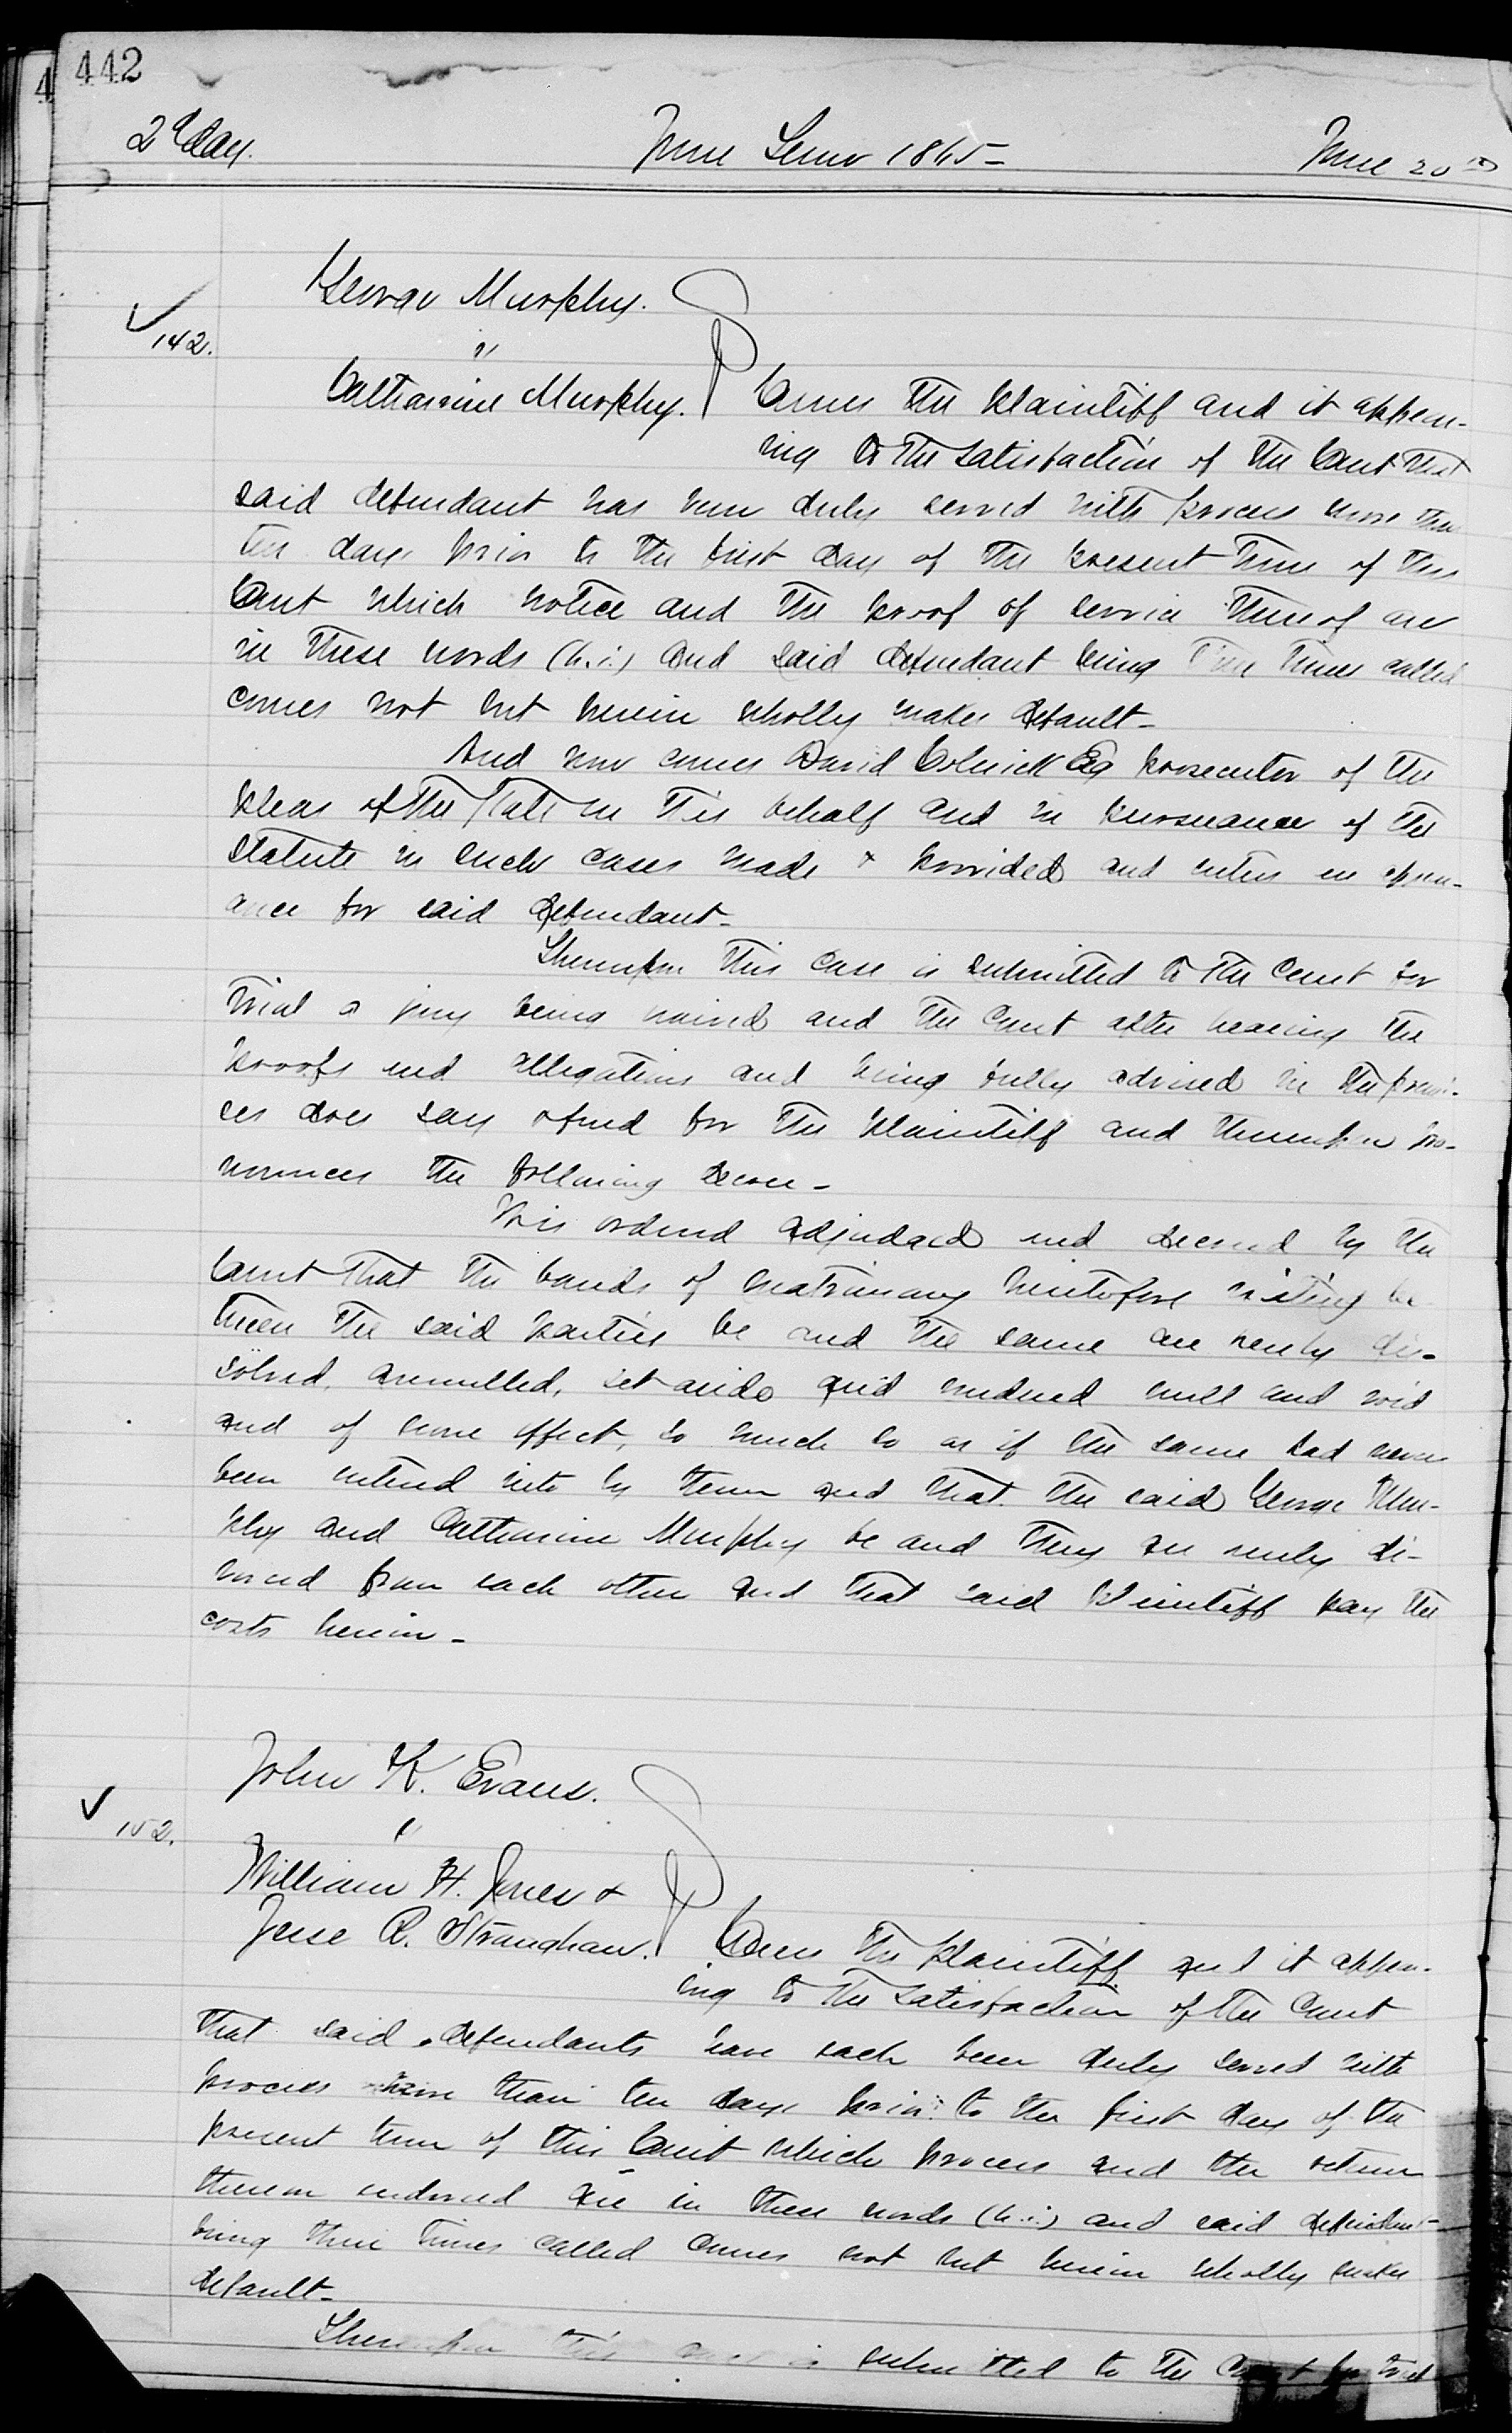 442
2d day. June Term 1865- June 20th
George Murphy.
142. "
Catharine Murphy. Comes the Plaintiff and it appear-
ing to the satisfaction of the Court that
said defendant has been duly served with process more than
ten days prior to the first day of the present Term of this
Court which notice and the proof of service thereof are
in these words (h.i.) and said defendant being Three Times called
comes not but herein wholly makes default-
And now comes David Esq prosecutor of the
Pleas of the State in this behalf and in pursuance of the
statute in such cases made & provided and enters an appear-
ance for said defendant-
Thereupon this case is submitted to the Court for
trial a jury being waived and the Court after hearing the
proofs and allegations and being fully advised in the premi-
ses does say & find for the Plaintiff and thereupon pro-
nounces the following decree-
It is ordered adjudged and decreed by the
Court that the bonds of matrimony heretofore existing be
tween the said parties be and the same are hereby dis-
solved, annulled, set aside and rendered null and void
and of none effect, so much so as if the same had never
been entered into by them and that the said George Mur-
phy and Catharine Murphy be and they are hereby di-
vorced from each other and that said Plaintiff pay the
costs herein-
John K. Evans.
152. "
William H. Jones &
Jesse R. Straughan. Comes the Plaintiff and it appear-
ing to the satisfaction of the Court
that said defendants have each been duly served with
process more than ten days prior to the first day of the
present term of this Court which process and the return
thereon endorsed are in these words (h.i.) and said defendants
being three times called comes not but herein wholly makes
default-
Thereupon this cause is submitted to the Court for trial